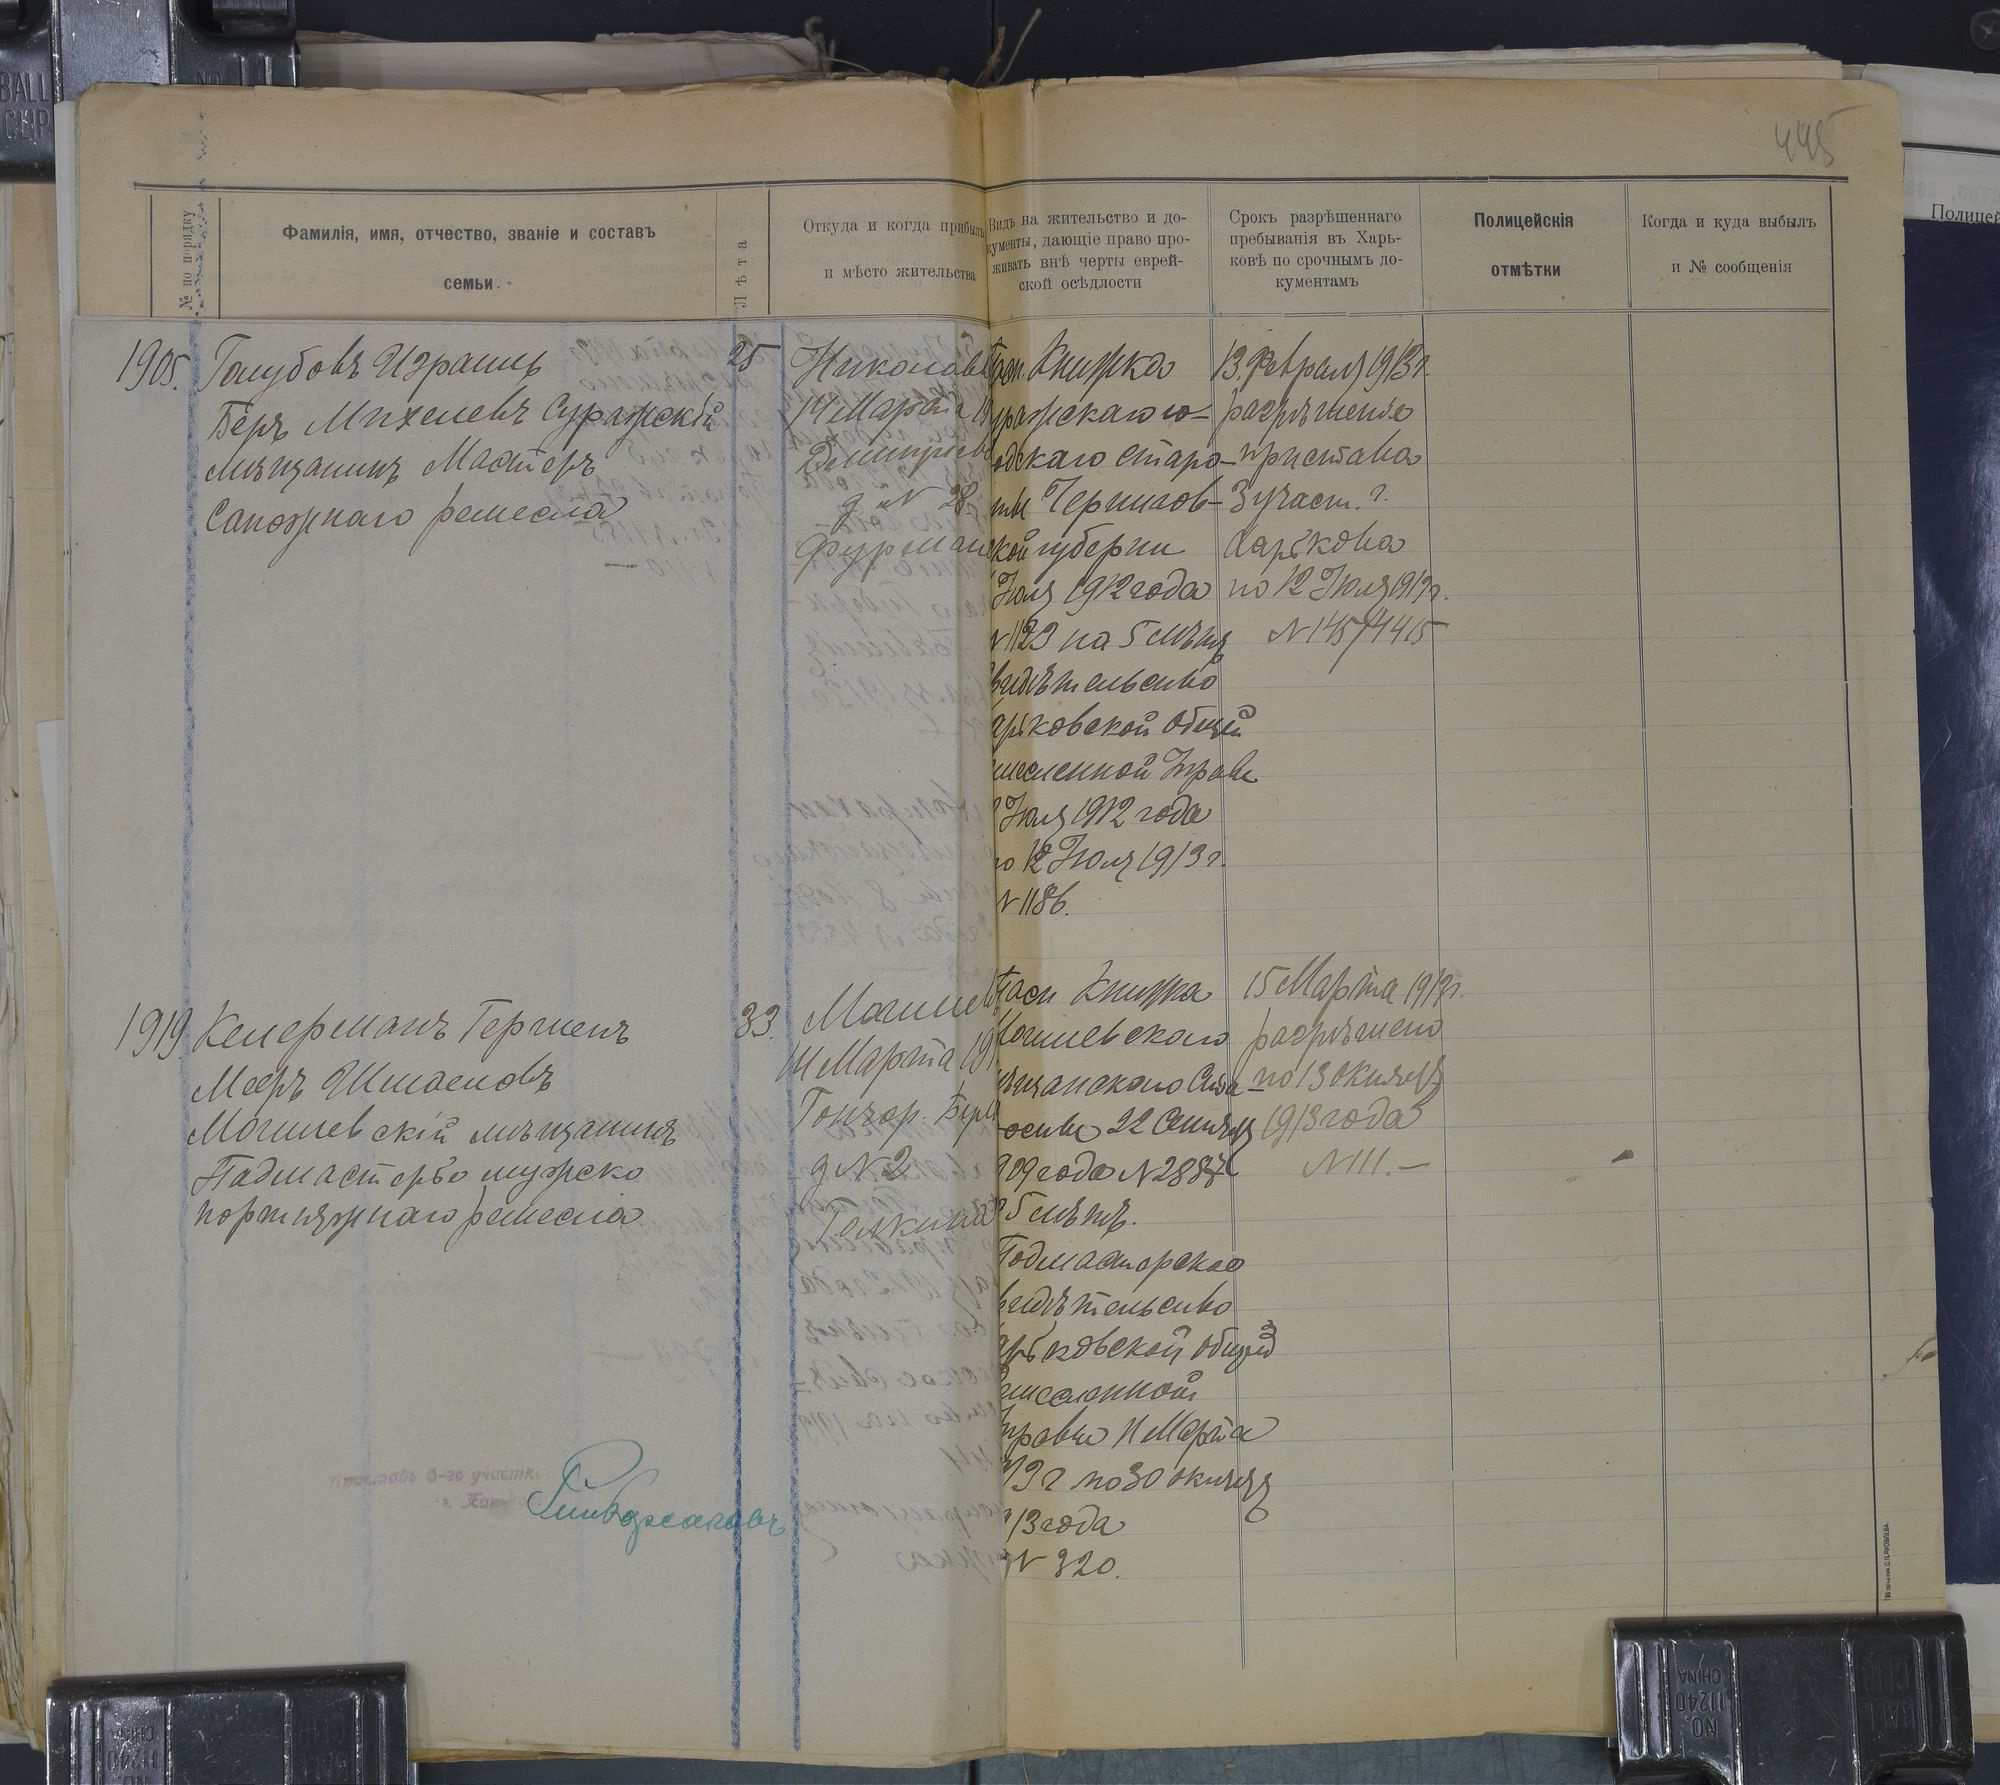 445
№ по порядку
Фамилія, имя, отчество, званіе и составъ
семьи.
Лѣта
Откуда и когда прибылъ
и мѣсто жительства
Видъ на жительство и до-
кументы, дающіе право про-
живать внѣ черты еврей-
ской осѣдлости
Срокъ разрѣшеннаго
пребыванія въ Харь-
ковѣ по срочнымъ до-
кументамъ
Полицейскія
отмѣтки
Когда и куда выбылъ
и № сообщенія
1905. Голубовъ Израиль
Беръ Михелевъ Суражскій
мѣщанинъ Мастеръ
Сапожнаго ремесла
25
Николаев
14 Марта 19
Дмитриев
д № 28.
Фурман
Пасп. Книжка
уражскаго го-
одскаго старо-
сты Чернигов-
ской губерни
Июля 1912 года
№ 1123 на 5 лѣтъ
видѣтельство
арьковской общей
емесленной Управы
Июля 1912 года
по 12 Июля 1913 г.
№ 1186.
13. февраля 1913 г.
разрѣшение
пристава
3 участ. г.
Харькова
по 12 Июля 1913 г.
№ 145/4415
1919. Келерманъ Гершенъ
Мееръ Шмаеловъ
Могилевскій мѣщанинъ
Падмастерье мужско
портняжнаго ремесла
33.
Могилев
14 Марта 19
Гончар. Бер
д № 2
Голкина
Пасп Книжка
Могилевскаго
ѣщанскаго Ста-
росты 22 Сентяб
909 года № 2887
5 лѣтъ.
Подмастерское
видѣтельство
арьковской общей
емесленной
Управы 11 Марта
913 г по 30 октяб
913 года
№ 320.
15 Марта 1913 г.
разрѣшено
по 13 октяб
1913 года
№ 111.—
Приставъ 3-го участка
г. Харь